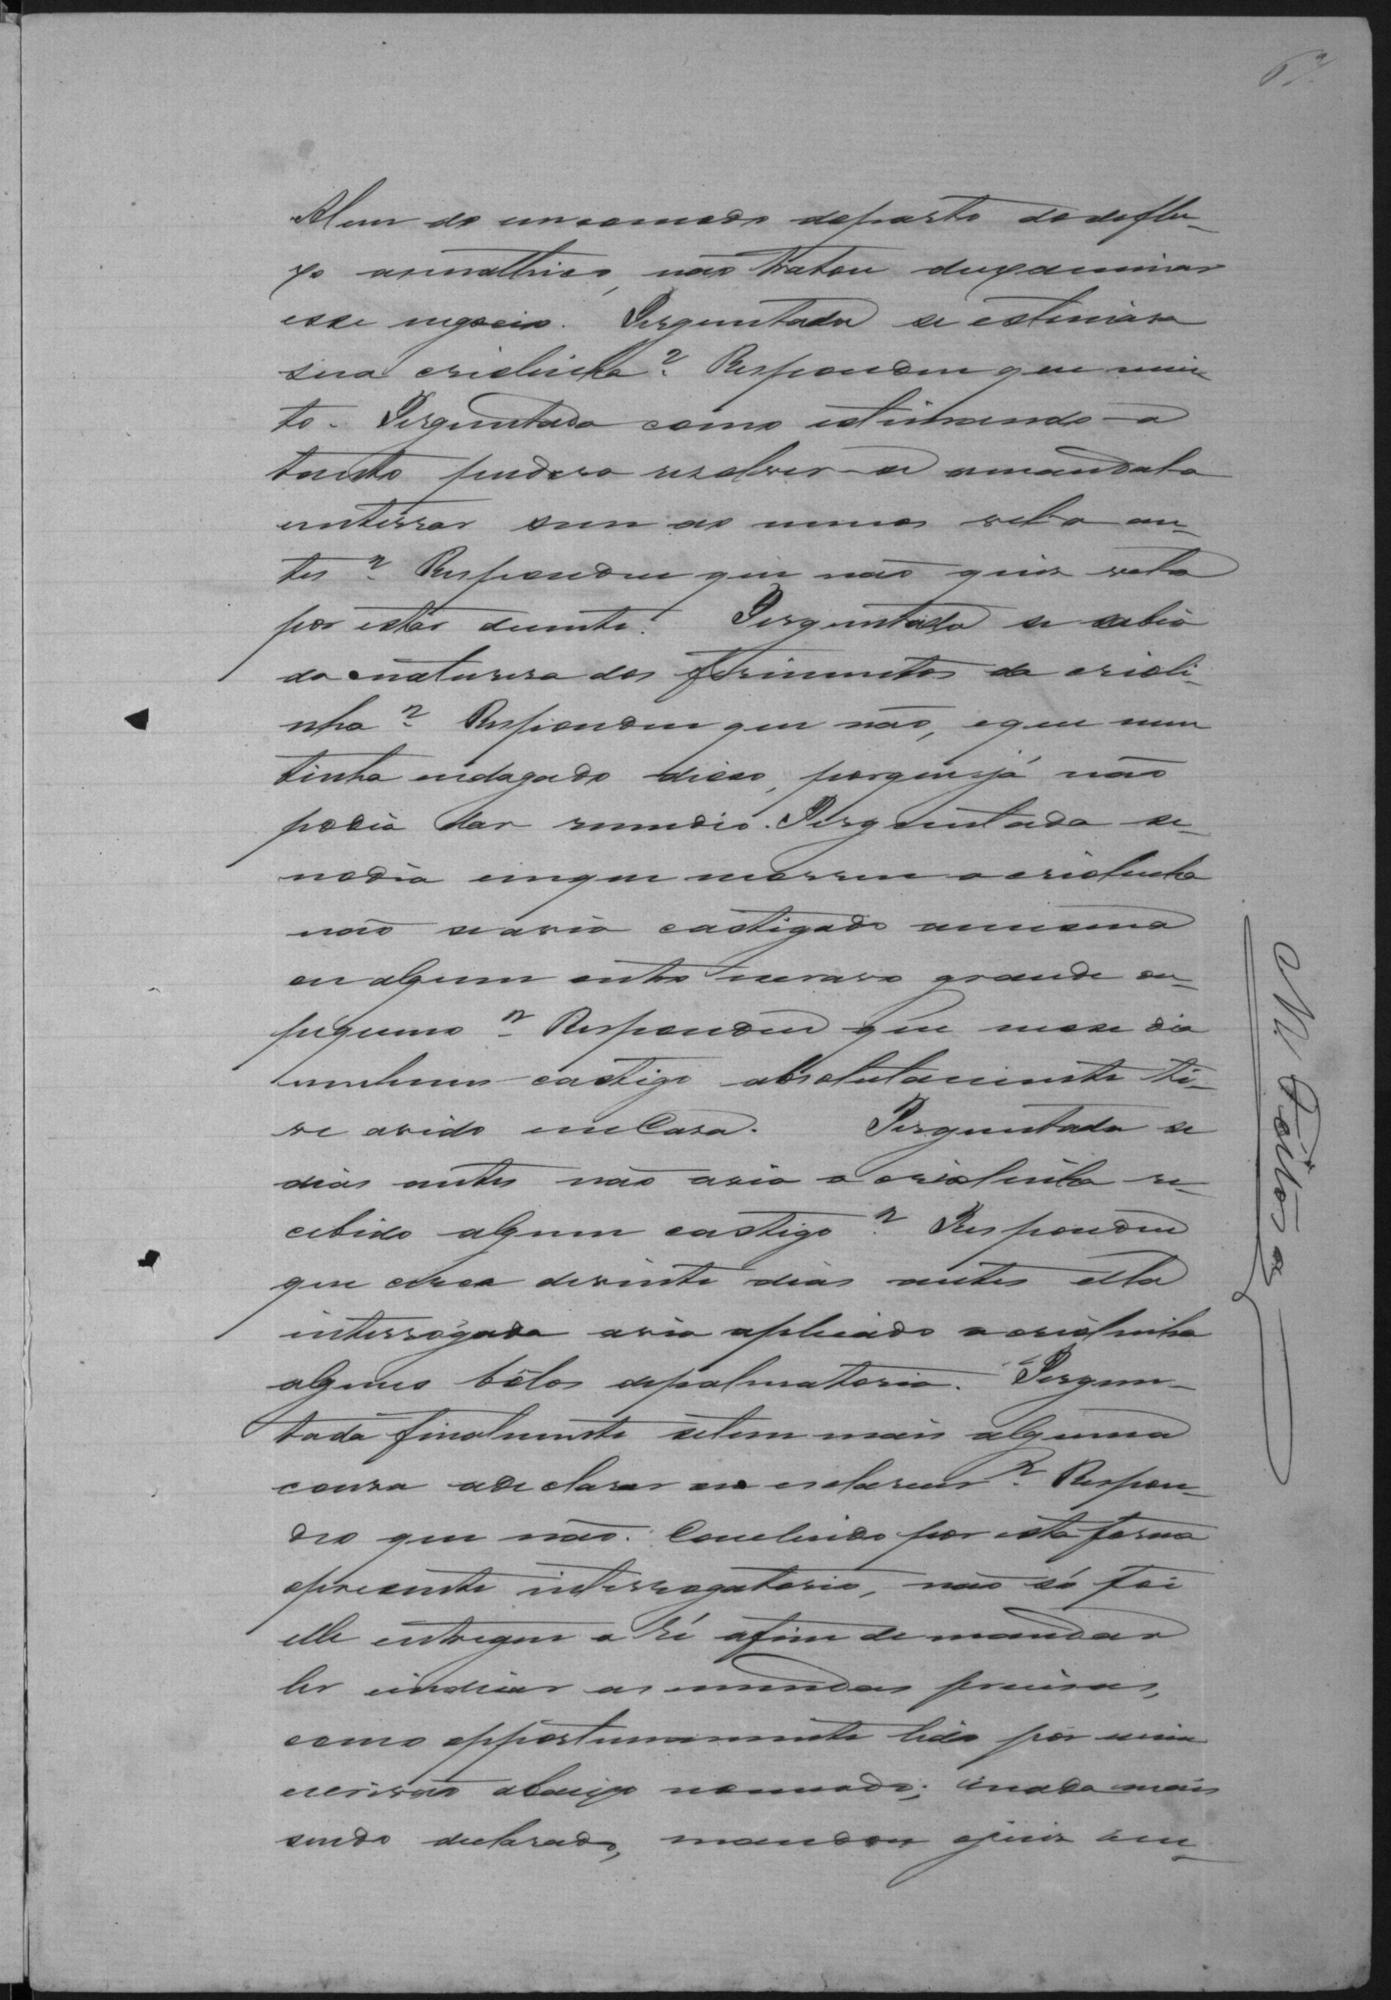 67
Alem do encomodo do parto do deflu-
xo asmathico, não tratou de examinar
esse negocio. Perguntada se estimára
sua crioulinha? Respondeu que mui-
to. Perguntada como estimando-a
tanto pudera resolver-se a mandala
enterrar sem ao menos vela an-
tes? Respondeu que não quiz vela
por estar duente. Perguntada se sabia
da naturesa dos ferimentos da criouli-
nha? Respondeu que não, e que nem
tinha endagado disso, porque já não
podia dar remedio. Perguntada se
no dia em que morreu a crioulinha
não se avia castigado a mesma
ou algum outro escravo grande ou
piqueno? Respondeu que nesse dia
nenhum castigo absolutamente ti-
ve avido em Casa. Perguntada se
dias antes não avia a crioulinha re-
cebido algum castigo? Respondeu
que cerca de vinte dias antes ella
interrogada avia aplicado a crioulinha
alguns bôlos de palmatoria. Pergun-
tada finalmente se tem mais alguma
couza a declarar ou esclarecer? Respon-
deo que não. Concluido por esta forma
o presente interrogatorio, não só foi
elle entregue a ré afim de mandar
ler indicar as emendas precisas,
como opportunamente lido por mim
escrivão abaixo nomeado; e nada mais
sendo declarado, mandou o juiz em-
M Feitosa